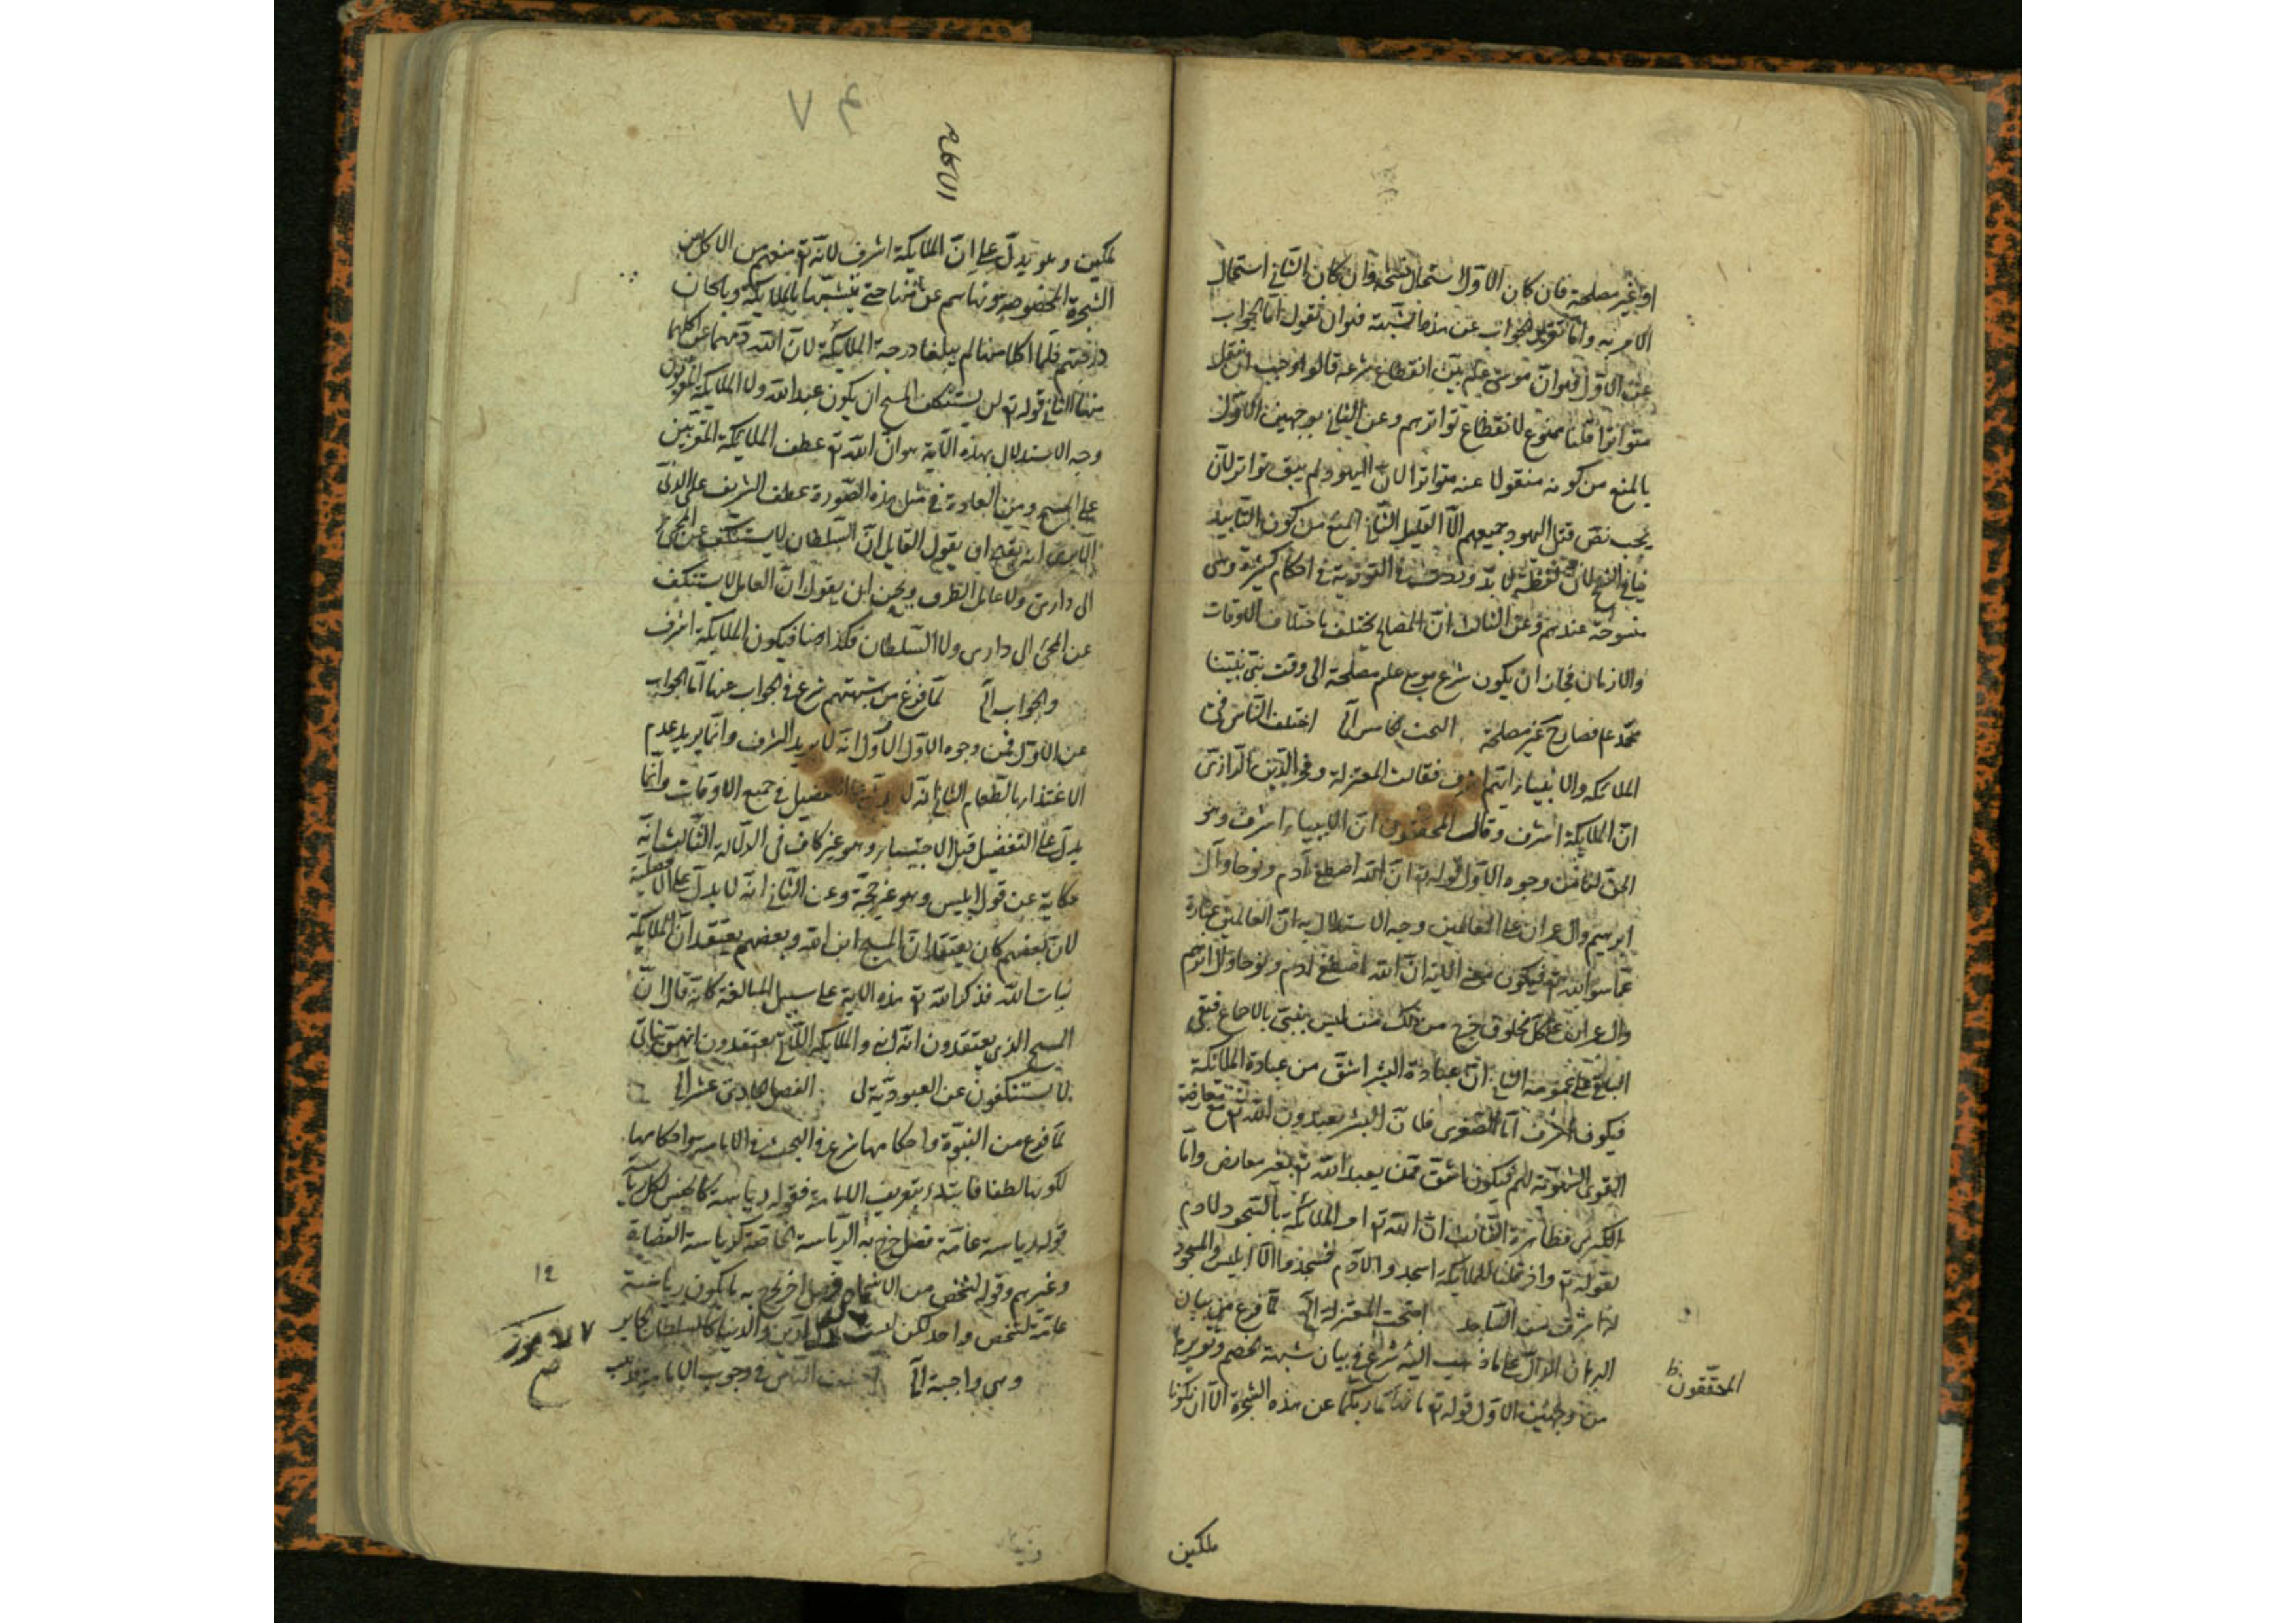 او غير مصلحة فان كان الاول استحال نسخه وان كان الثاني استحال
الامر به واما تقرير الجواب عن هذه الشبهة فهو ان نقول اما الجواب
عن الاول فهو ان موسى علم بين انقطاع شرعه قالوا لوجب ان ينقل
متواترا قلنا ممنوع لانقطاع تواترهم وعن الثاني بوجهين الاول
بالمنع من كونه منقولا عنه متواترا لان اليهود لم يبق تواتر لان
بخت نصر قتل اليهود جميعهم الا القليل الثاني المنع من كون التابيد
ينافي النسخ لان لفظة التابيد وردت في التورية في احكام كثيرة وهي
منسوخة عندهم وعن الثالث ان المصالح يختلف باختلاف الاوقات
والازمان فجاز ان يكون شرع موسى علم مصلحة الى وقت نبينا
محمد عم فصار غير مصلحة البحث الخامس الى اختلف الناس في
الملائكة والانبياء ايهم اشرف فقالت المعتزلة وفخر الدين الرازي
ان الملايكة اشرف وقال المحققون ان الانبياء اشرف وهو
الحق لنا من وجوه الاول قوله تع ان الله اصطفى آدم ونوحا وآل
ابرهيم وال عمران على العالمين وجه الاستدلال به ان العالمين عبارة
عما سوا الله تع فيكون معنى الاية ان الله اصطفى ادم ونوحا وآل ابرهيم
وال عمران على كل مخلوق خرج من ذلك من ليس بنبي بالاجماع فبقي
الباقي على عمومه الثاني ان عبادة البشر اشق من عبادة الملائكة
فيكون اشرف اما الصغرى فلان البشر يعبدون الله تع مع معارضة
القوى الشهوية لهم فيكون اشق ممن يعبد الله تع بغير معارض واما
الكبرى فظاهرة الثالث ان الله تع امر الملائكة بالسجود لادم
لقوله تع واذ قلنا للملايكة اسجدوا لادم فسجدوا الا ابليس والمسجود
له اشرف من الساجد احتجت المعتزلة الى لما فرغ من بيان
البرهان الدال على ما ذهب اليه شرع في بيان شبهة الخصم وتقريرها
من وجهين الاول قوله تع ما نهاكما ربكما عن هذه الشجرة الا ان تكونا
المحققون ظ
ملكين
٧٤
الامامة
ملكين وهو يدل على ان الملايكة اشرف لانه تع منعهم من الاكل من
الشجرة المخصوصة ونهاهم عن اكلها حتى يتشبها بالملايكة ويلحقان
درجتهم فلما اكلا منها لم يبلغا درجة الملايكة لان الله تع نهما عن اكلهما
منها الثاني قوله تع لن يستنكف المسيح ان يكون عبد الله ولا الملايكة المقربون
وجه الاستدلال بهذه الآية هو ان الله تع عطف الملايكة المقربين
على المسيح ومن العادة في مثل هذه الصورة عطف الشريف على الادنى
الا يرى انه يقبح ان يقول القايل ان السلطان لا يستنكف عن المجيء
الى داري ولا عامل الطرف ويحسن ان يقول ان العامل لا يستنكف
عن المجيء الى داري ولا السلطان فكذا هنا فيكون الملايكة اشرف
والجواب الى لما فرغ من شبهتهم شرع في الجواب عنها اما الجواب
عن الاول فمن وجوه الاول الاول انه لا يريد الشرف وانما يريد عدم
الاغتذاء بالطعام الثاني انه لا التفضيل في جميع الاوقات وانما
يدل على التفضيل قبل الاجتباء وهو غير كاف في الدلالة الثالث انه
حكاية عن قول ابليس وهو غير حجة وعن الثاني انه لا يدل على الافضلية
لان بعضهم كان يعتقد ان المسيح ابن الله وبعضهم يعتقد ان الملايكة
بنات الله فذكر الله تع هذه الاية على سبيل المبالغة كانه قال ان
المسيح الذي يعتقدون انه ابني والملايكة التي تعتقدون انهم بناتي
لا يستنكفون عن العبودية لي الفصل الحادي عشر الى
لما فرغ من النبوة واحكامها شرع في البحث في الامامة واحكامها
لكونها لطفا فابتدء بتعريف الامامة فقوله رياسة كالجنس لكل رياسة
قوله رياسة عامة فصل خرج به الرياسة الخاصة كرياسة القضاة
وغيرهم وقوله لشخص من الاشخاص فصل اخر يخرج به ما يكون رياسة
عامة لشخص واحد لكن ليست في الدين والدنيا كالسلطان الجاير
وهي واجبة الى اختلف الناس في وجوب الامامة فذهب
١٢